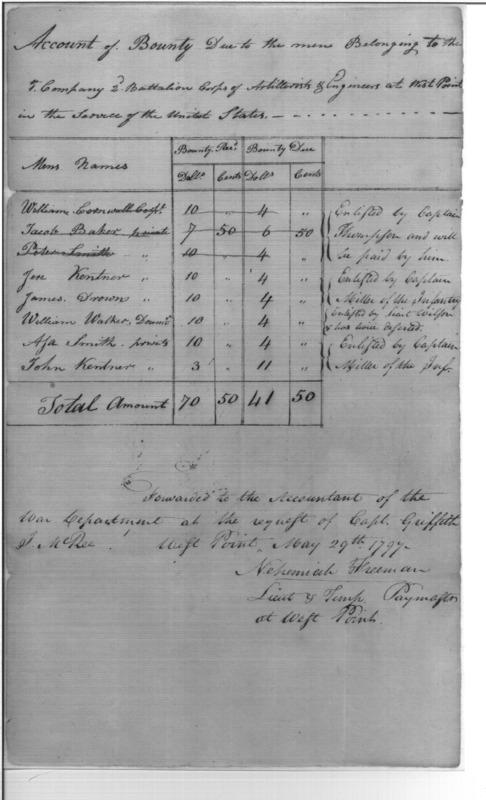 Account of Bounty Due to the men Belonging to the
Company 2d Battalion Corps of Artillerists & Engineers at West Point
in the Service of the United States.
Mens Names Bounty Recd Bounty Due
Dolls Cents Dolls Cents
William Cornwall Corpl. 10 " 4 " Enlisted by Captain
Jacob Baker privat 7 50 6 50 Thompson and will
Peter Smith " 10 " 4 " be paid by him
Jon Kentner " 10 " 4 " Enlisted by Captain
James Brown " 10 " 4 " Miller of the Infantry
William Walker, Drumr 10 " 4 " Enlisted by Lieut Wilson & has twice deserted.
Asa Smith privat 10 " 4 " Enlisted by Captain
John Kentner " 3 " 11 " Miller of the Inf.
Total Amount 70 50 41 50
Forwarded to the Accountant of the
War Department at the request of Capt. Griffith
J. McRee. West Point, May 29th 1797.
Nehemiah Freeman
Lieut & Temp. Paymaster
at West Point.